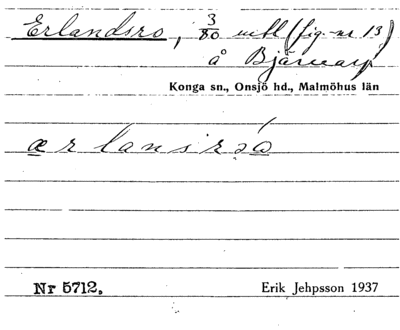 Erlandsro, 3/80 mtl (fig. nr 13)
å Bjärnarp
Konga sn., Onsjö hd., Malmöhus län
ærlansrɔ́ɷ
Nr 5712.
Erik Jehpsson 1937